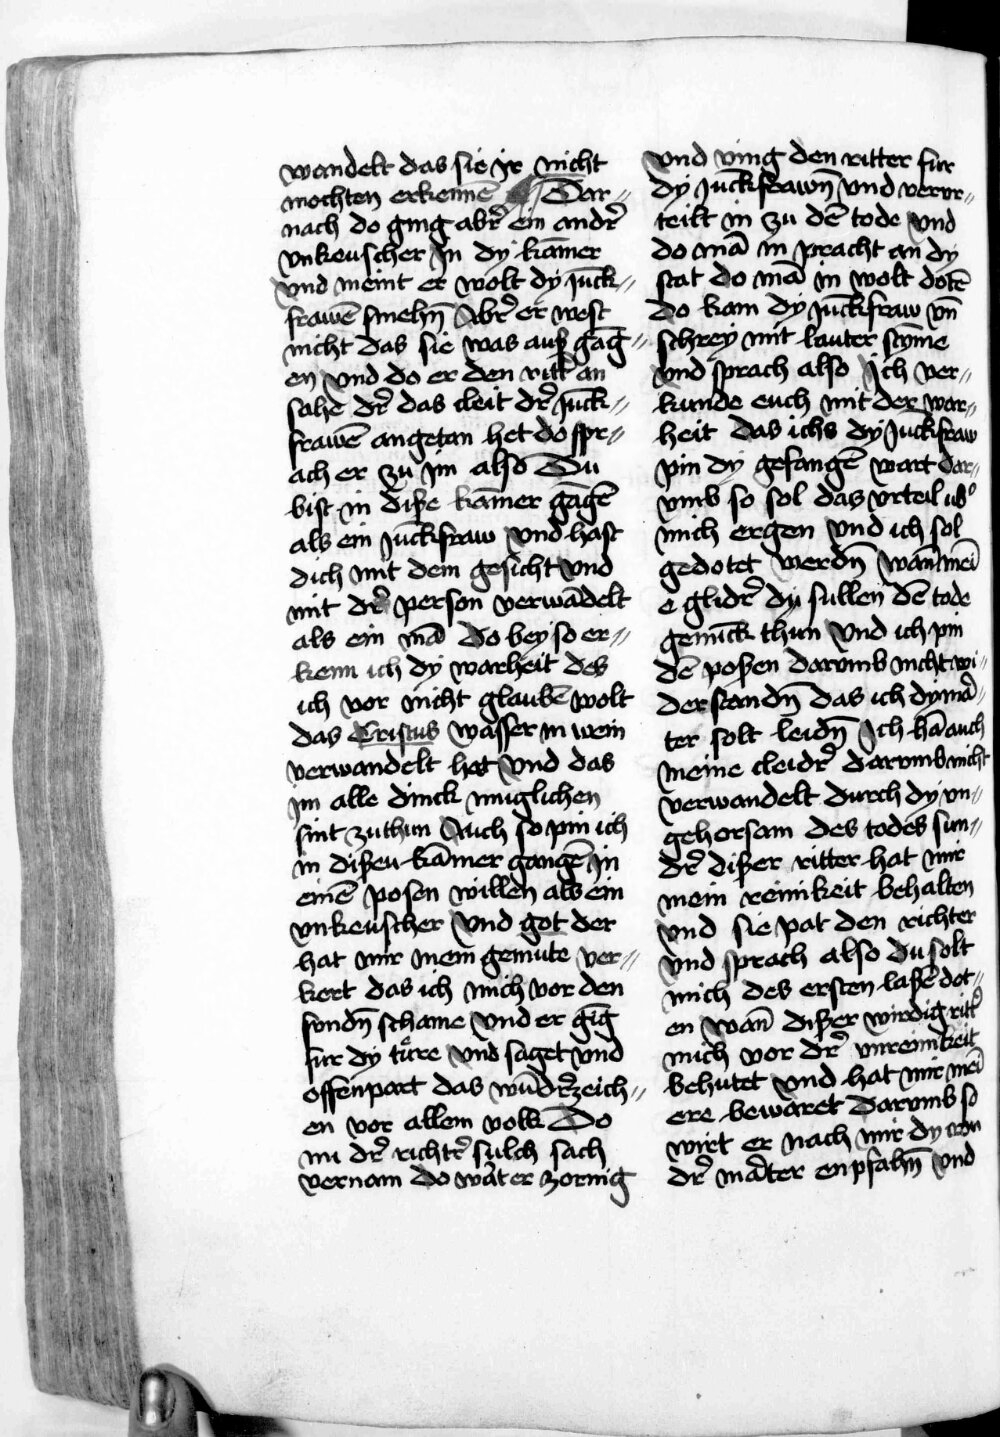 wandelt das sie ir nicht
mochten erkenne͞ Dar〃
nach do ging abr̃ ein andr̃
vnkeuscher In dy ka͞mer
vnd meint er wolt dy Ju͞ck〃
frawe͞ smehn̄ Abr̃ er west
nicht das sie was auß ga͞g〃
en vnd do er den ritt̃ an
sahe dr̃ das cleit dr̃ Ju͞ck〃
frawe͞ angetan het do spr〃
ach er zu Im also Du
bist in diße ka͞mer ga͞ge͞
als ein Ju͞ckfraw vnd hast
dich mit dem gesicht vnd
mit dr̃ person verwa͞delt
als ein ma͞ Do bey so er〃
kenn ich dy warheit des
ich vor nicht glaube͞ wolt
das Cristus wasser in wein
verwandelt hat vnd das
im alle dinck muglichen
sint zuthun Auch so pin ich
in dißeu ka͞mer gange͞ In
eine͞ posen willen als ein
vnkeuscher vnd got der
hat mir mein gemute ver〃
kert das ich mich vor den
sundn̄ schame vnd er gi͞g
fur dy tu̇re vnd saget vnd
offenpart das wu͞dr̃zeich〃
en vor allem volk Do
nu dr̃ richtr̃ sulch sach
vernam do wart er zornig
vnd ving den ritter fur
dy Ju͞ckfrawn̄ vnd vervr〃
teilt in zu de͞ tode vnd
do ma͞ in pracht an dy
stat do ma͞ in wolt dote͞
do kam dy Ju͞ckfraw vn̄
schrey mit lauter sty͞me
vnd sprach also Ich ver〃
kunde euch mit der war〃
heit das ichs dy Ju͞ckfraw
pin dy gefange͞ wart dar〃
vmb so sol das vrteil vb᷒
mich ergen vnd ich sol
gedotet werdn̄ wan̄ mei͞
e glidr̃ dy sullen de͞ tode
genu͞ck thun vnd ich pin
de͞ poßen darumb nicht wi〃
derstandn̄ das ich dy mar̃〃
ter solt leidn̄ Ich ha͞ auch
meine cleidr̃ darumb nicht
verwandelt durch dy vn〃
gehorsam des todes sun〃
dr̃ dißer ritter hat mir
mein reinikeit behalten
vnd sie pat den richter
vnd sprach also du solt
mich des ersten laße͞ dot〃
en wan̄ dißer wirdig ritt̃
mich vor dr̃ vnreinikeit
behutet vnd hat mir mei͞
ere bewaret darumb so
wirt er nach mir dy cron
dr̃ mar̃ter enpfahn̄ vnd